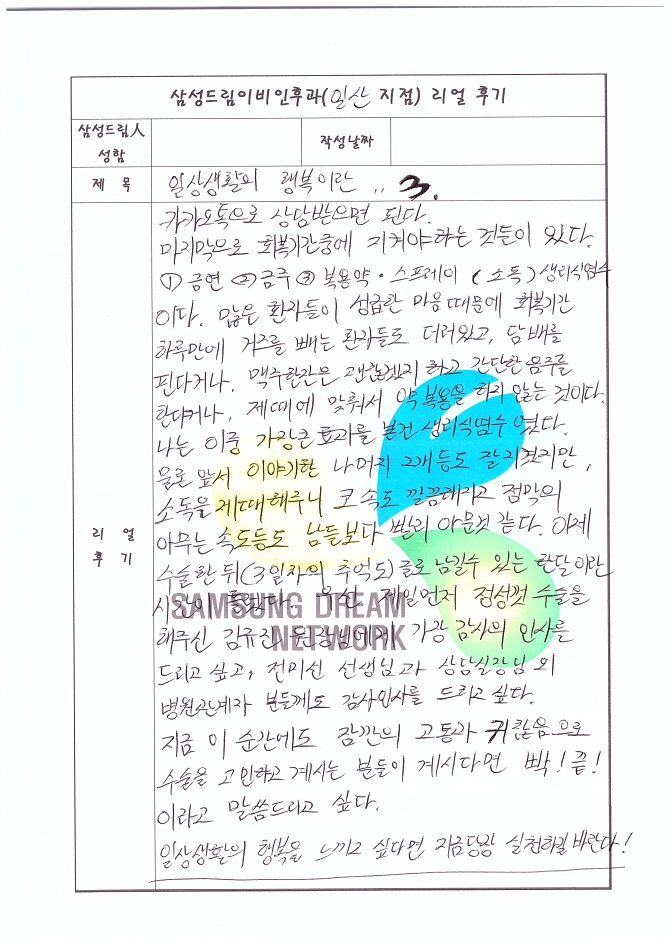 삼성드림이비인후과(일산 지점) 리얼 후기
삼성드림人 성함
작성날짜
제 목
일상생활의 행복이란 .. 3.
리 얼 후 기
카카오톡으로 상담받으면 된다.
마지막으로 회복기간중에 지켜야하는 것들이 있다.
① 금연 ② 금주 ③ 복용약 · 스프레이 (소독) 생리식염수
이다. 많은 환자들이 성급한 마음때문에 회복기간
하루만에 거즈를 빼는 환자들도 더러있고, 담배를
핀다거나, 맥주한잔은 괜찮겠지 하고 간단한 음주를
한다거나, 제때에 맞춰서 약 복용을 하지 않는 것이다.
나는 이중 가장큰 효과를 본건 생리식염수 였다.
물론 앞서 이야기한 나머지 2개등도 잘지켰지만,
소독을 제때해주니 코 속도 깔끔해지고 점막의
아무는 속도등도 남들보다 빨리 아문것 같다. 이제
수술한 뒤 (3일차의 추억도) 글로 남길수 있는 한달이란
시간이 흘렀다. 우선 제일먼저 정성껏 수술을
해주신 김유진 원장님에게 가장 감사의 인사를
드리고 싶고, 전미선 선생님과 상담실장님 외
병원관계자 분들께도 감사인사를 드리고 싶다.
지금 이 순간에도 잠깐의 고통과 귀찮음으로
수술을 고민하고 계시는 분들이 계시다면 빡! 끝!
이라고 말씀드리고 싶다.
일상생활의 행복을 느끼고 싶다면 지금당장 실천하길 바란다!
SAMSUNG DREAM
NETWORK